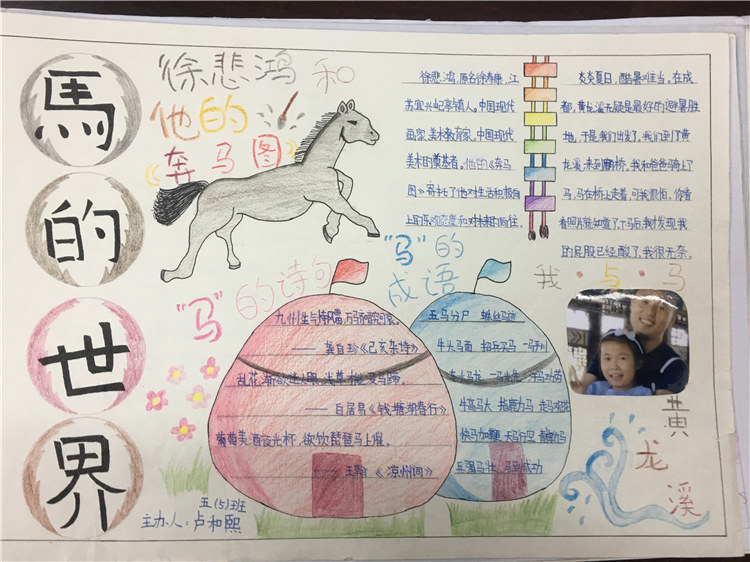 馬的世界
徐悲鸿和
他的
《奔马图》
徐悲鸿,原名徐寿康,江
苏宜兴屺亭镇人。中国现代
画家、美术教育家。中国现代
美术的奠基者。他的《奔马
图》寄托了他对生活积极自
炎炎夏日,酷暑难当。在成
都,黄龙溪无疑是最好的避暑胜
地,于是我们出发了。我们到了黄
龙溪,来到鹊桥。我和爸爸骑上了
马,马在桥上走着,可我很怕,你看
看照片就知道了,下马后我发现我
的屁股已经酸了,我很无奈。
"马"的诗句
九州生气恃风雷,万马齐喑究可哀。
——龚自珍《己亥杂诗》
乱花渐欲迷人眼,浅草才能没马蹄。
——白居易《钱塘湖春行》
葡萄美酒夜光杯,欲饮琵琶马上催。
——王翰《凉州词》
"马"的
成语
五马分尸 蛛丝马迹
牛头马面 招兵买马
指鹿为马 走马观花
快马加鞭 天马行空
兵荒马乱 马到成功
我·与·马
黄龙溪
五(5)班
主办人:卢和熙